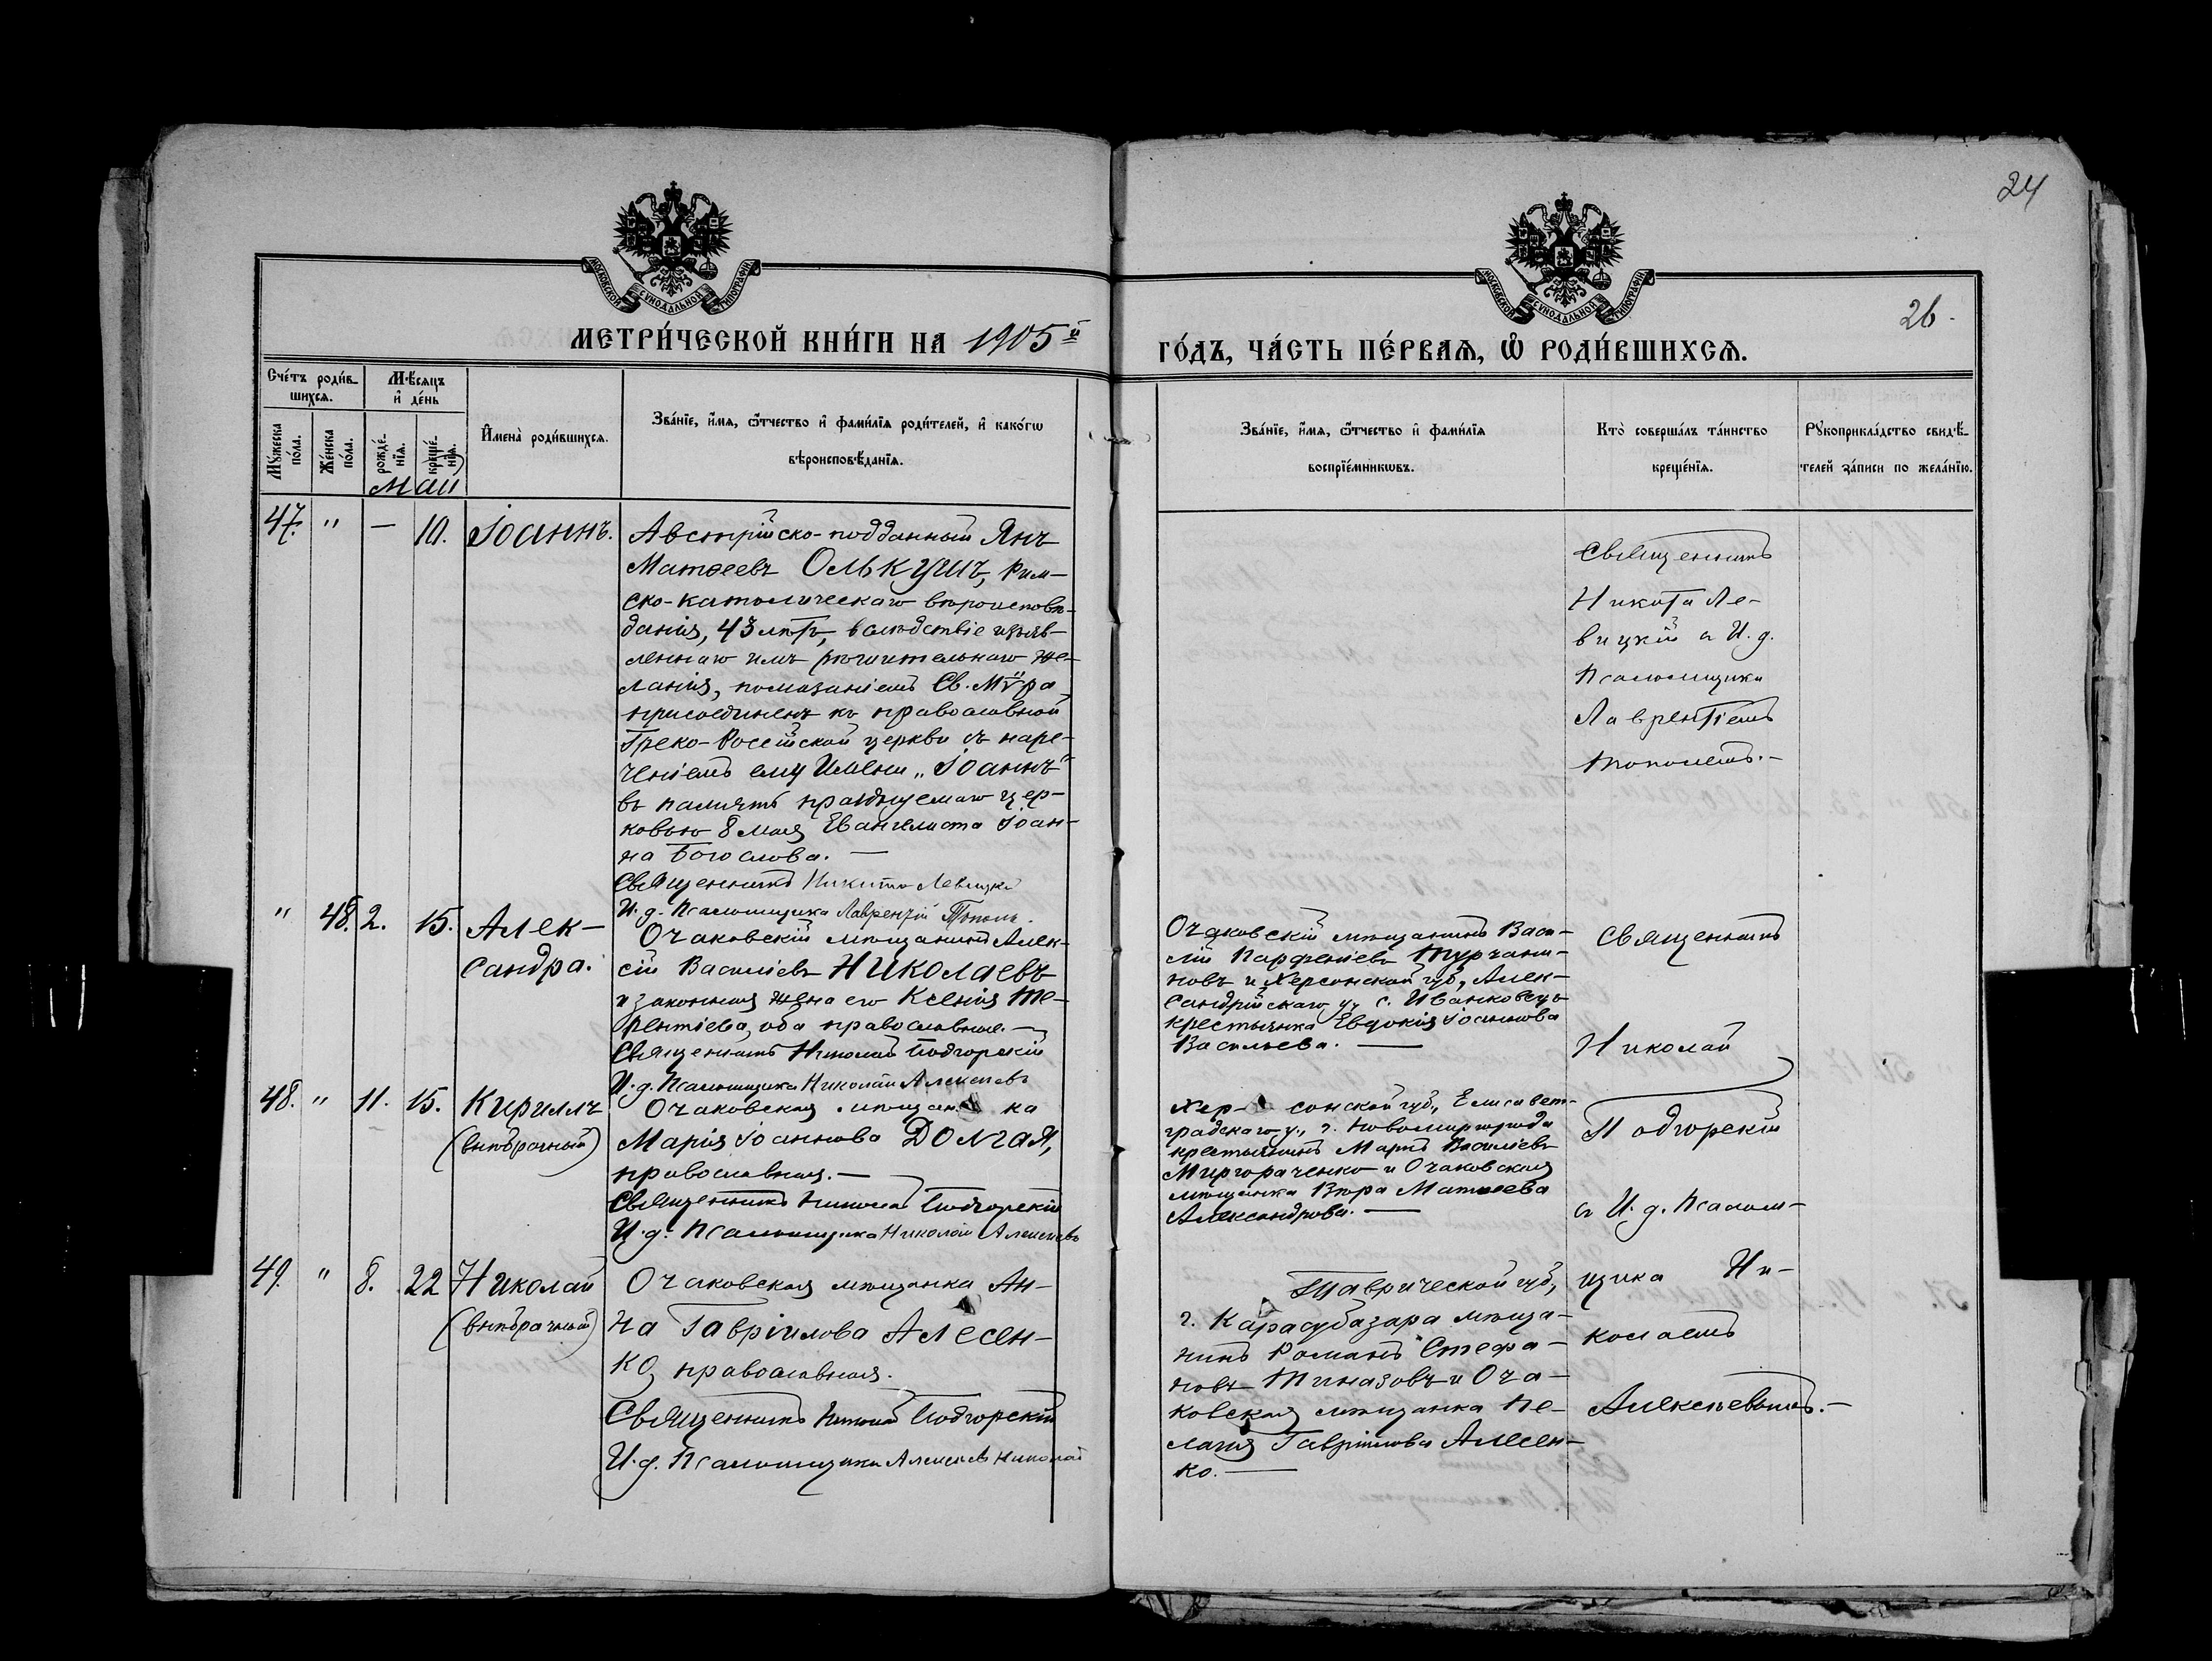 24
МОСКОВСКОЙ СУНОДАЛЬНОЙ ТИПОГРАФІИ
МОСКОВСКОЙ СУНОДАЛЬНОЙ ТИПОГРАФІИ
26.
МЕТРИ́ЧЕСКОЙ КНИ́ГИ НА 1905й
ГО́ДЪ, ЧА́СТЬ ПЕ́РВАѦ, Ѽ РОДИ́ВШИХСѦ.
Сче́тъ роди́в-
шихсѧ.
Мѣ́сѧцъ
и҆ де́нь
Мꙋ́жеска
по́ла.
Же́нска
по́ла.
рожде́-
нїѧ.
креще́-
нїѧ.
И҆мена̀ роди́вшихсѧ.
Зва́нїе, и҆́мѧ, ѻ҆́тчество и҆ фами́лїѧ роди́телей, и҆ како́гѡ
вѣроисповѣ́данїѧ.
Зва́нїе, и҆́мѧ, ѻ҆́тчество и҆ фами́лїѧ
воспрїе́мникѡвъ.
Кто̀ соверша́лъ та́инство
креще́нїѧ.
Рꙋкоприкла́дство свидѣ́-
телей за́писи по жела́нїю.
Май
47. " — 10. Іоаннъ.
Австрійско-подданный Янъ
Матвеевъ Олькушъ, Рим-
ско-католическаго вѣроисповѣ-
данія, 43 лѣтъ, вслѣдствіе изъяв-
леннаго имъ рѣшительнаго же-
ланія, помазаніемъ Св. Мѵра
присоединенъ къ православной
Греко-Россійской церкви съ наре-
ченіемъ ему имени „Іоаннъ"
въ память празднуемаго цер-
ковью 8 мая Евангелиста Іоан-
на Богослова. —
Священникъ Никита Левицкій
И. д. Псаломщика Лаврентій Тополь.
Священникъ
Никита Ле-
вицкій съ И. д.
Псаломщика
Лаврентіемъ
Тополемъ. —
" 48. 2. 15. Алек-
сандра.
Очаковскій мѣщанинъ Алек-
сій Василіевъ Николаевъ
и законная жена его Ксенія Те-
рентіева, оба православные. —
Священникъ Николай Подгорскій
И. д. Псаломщика Николай Алексѣевъ
Очаковскій мѣщанинъ Васи-
лій Парфеніевъ Турчани-
новъ и Херсонской губ., Алек-
сандрійскаго у., с. Иванковецъ
крестьянка Евдокія Іоаннова
Васильева. —
Священникъ
Николай
Подгорскій
съ И. д. Псалом-
щика Ни-
колаемъ
Алексѣевымъ. —
48. " 11. 15. Кириллъ
(внѣбрачный)
Очаковская мѣщанка
Марія Іоаннова Долгая,
православная. —
Священникъ Николай Подгорскій
И. д. Псаломщика Николай Алексѣевъ
Херсонской губ., Елисавет-
градскаго у., г. Новомиргорода
крестьянинъ Василіевъ
Миргораченко и Очаковская
мѣщанка Вѣра Матвеева
Александрова. —
49. " 8. 22 Николай
(внѣбрачный)
Очаковская мѣщанка Ан-
на Гавріилова Алесен-
ко, православная.
Священникъ Николай Подгорскій
И. д. Псаломщика Алексѣевъ Николай
Таврической губ.,
г. Карасубазара мѣща-
нинъ Романъ Стефа-
новъ Тиназовъ и Оча-
ковская мѣщанка Пе-
лагія Гавріилова Алесен-
ко. —